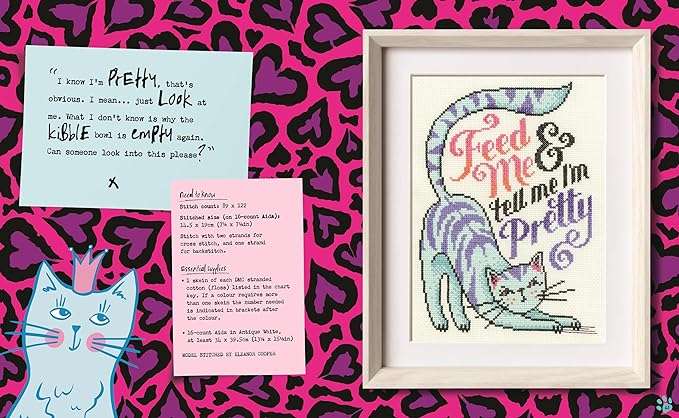 "I know I'm PrEtty, that's
obvious. I mean... just LOOK at
me. What I don't know is why the
KiBBLE bowl is EMPTY again.
Can someone look into this please?"
x
Need to know
Stitch count: 89 x 122
Stitched size (on 16-count Aida):
14.5 x 19cm (7¼ x 7½in)
Stitch with two strands for
cross stitch, and one strand
for backstitch.
Essential supplies
• 1 skein of each DMC stranded
cotton (floss) listed in the chart
key. If a colour requires more
than one skein the number needed
is indicated in brackets after
the colour.
• 16-count Aida in Antique White,
at least 34 x 39.5cm (13¼ x 15½in)
MODEL STITCHED BY ELEANOR COOPER
Feed
Me &
tell me I'm
Pretty